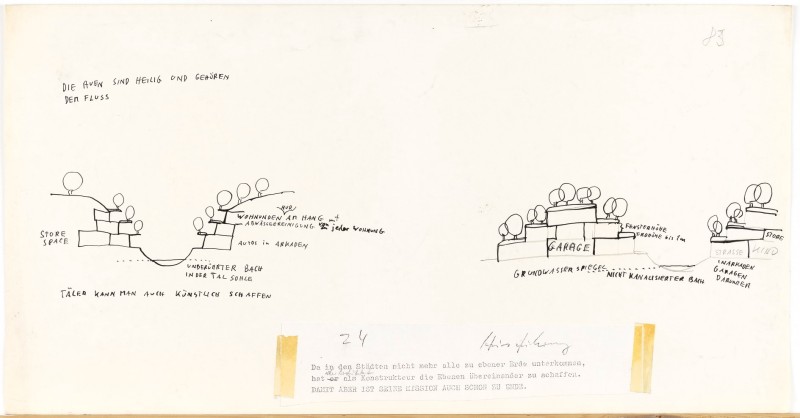 83
DIE AUEN SIND HEILIG UND GEHÖREN
DEM FLUSS
STORE
SPACE
NUR
WOHNUNGEN AM HANG mit
ABWÄSSERREINIGUNG IN jeder WOHNUNG
AUTOS in ARKADEN
UNBERÜHRTER BACH
IN DER TAL SOHLE
TÄLER KANN MAN AUCH KÜNSTLICH SCHAFFEN
GARAGE
FENSTERHÖHE
ERDHÖHE bis 1m
GRUNDWASSERSPIEGEL
NICHT KANALISIERTER BACH
STORE
STRASSE
KINO
IN ARKADEN
GARAGEN
DARUNTER
24
Da in den Städten nicht mehr alle zu ebener Erde unterkommen,
hat er als Konstrukteur die Ebenen übereinander zu schaffen.
DAMIT ABER IST SEINE MISSION AUCH SCHON ZU ENDE.